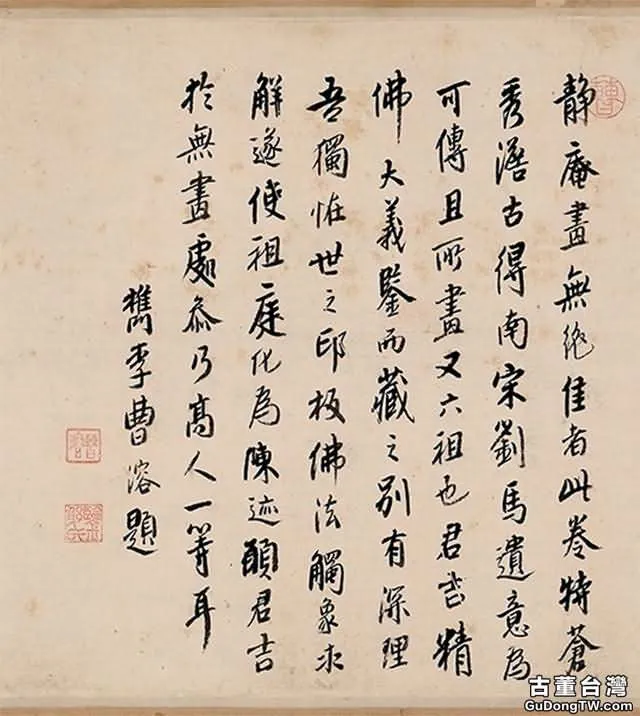 靜庵畫無絕佳者此卷特蒼
秀澹古得南宋劉馬遺意為
可傳且所畫又六祖也君吉精
佛大義鑒而藏之別有深理
吾獨怪世之印板佛法觸象求
解遂使祖庭化為陳迹願君吉
於無畫處參乃高人一等耳
檇李曹溶題
古董台灣
GuDongTW.com